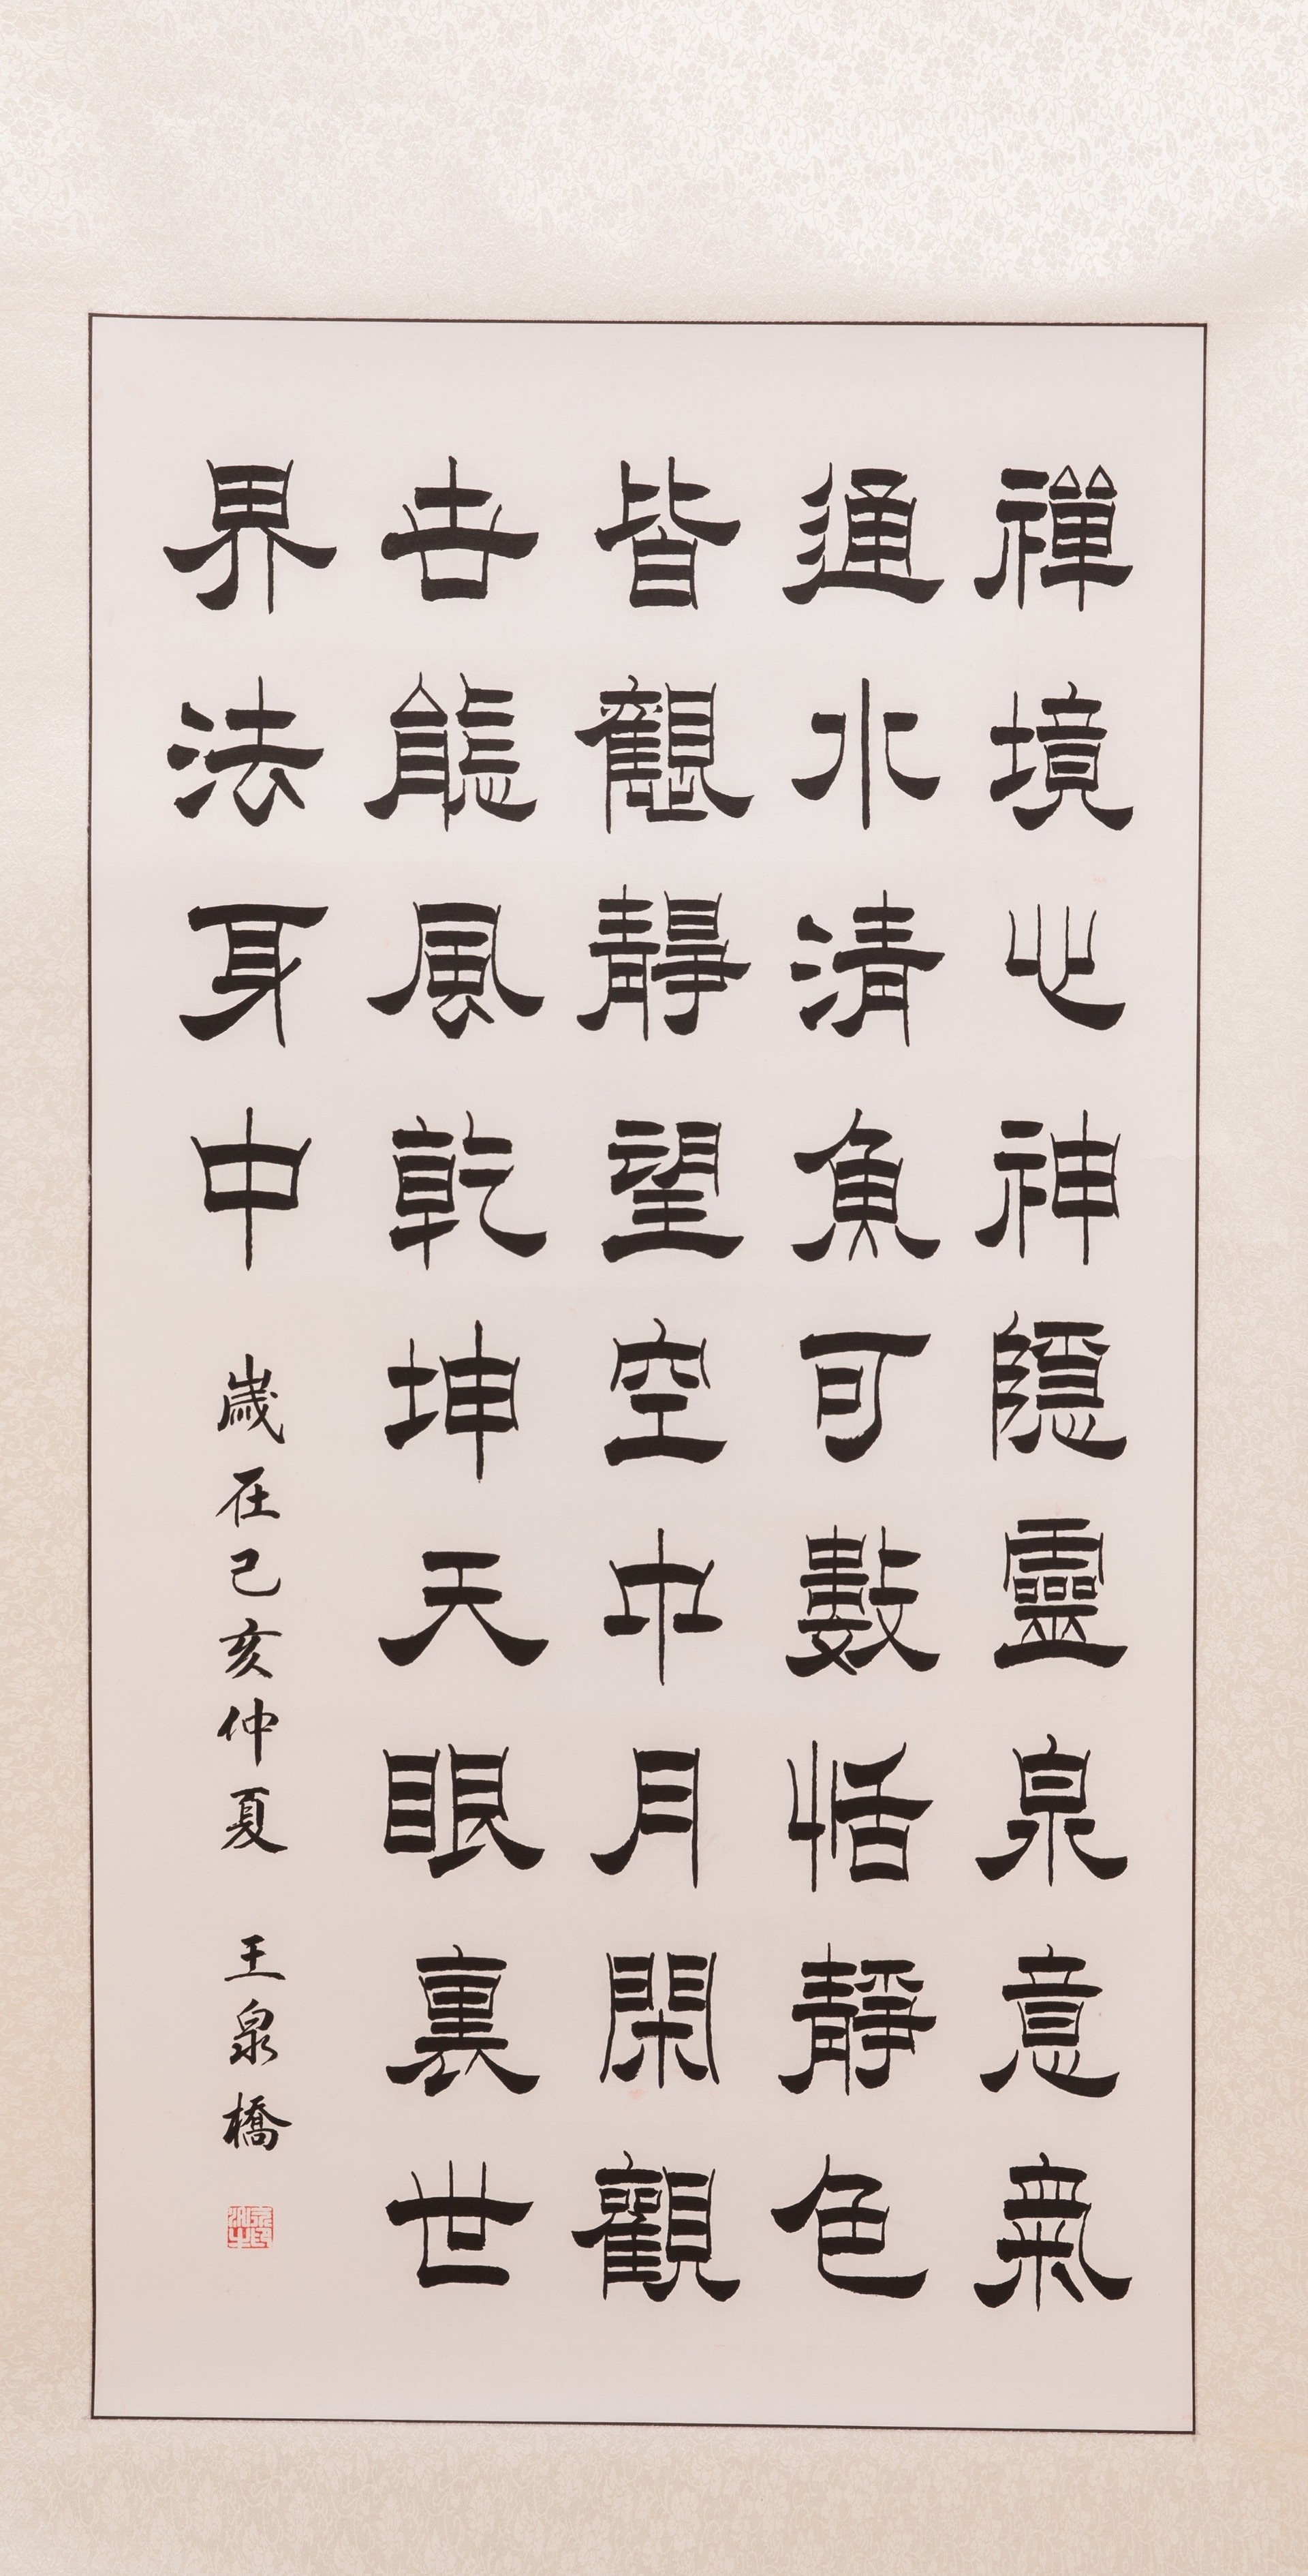 禪境心神隱靈泉意氣
通水清魚可數恬靜色
皆靜望空中月閑觀
能風乾坤天眼裏世
界法身中
歲在己亥仲夏 王泉橋